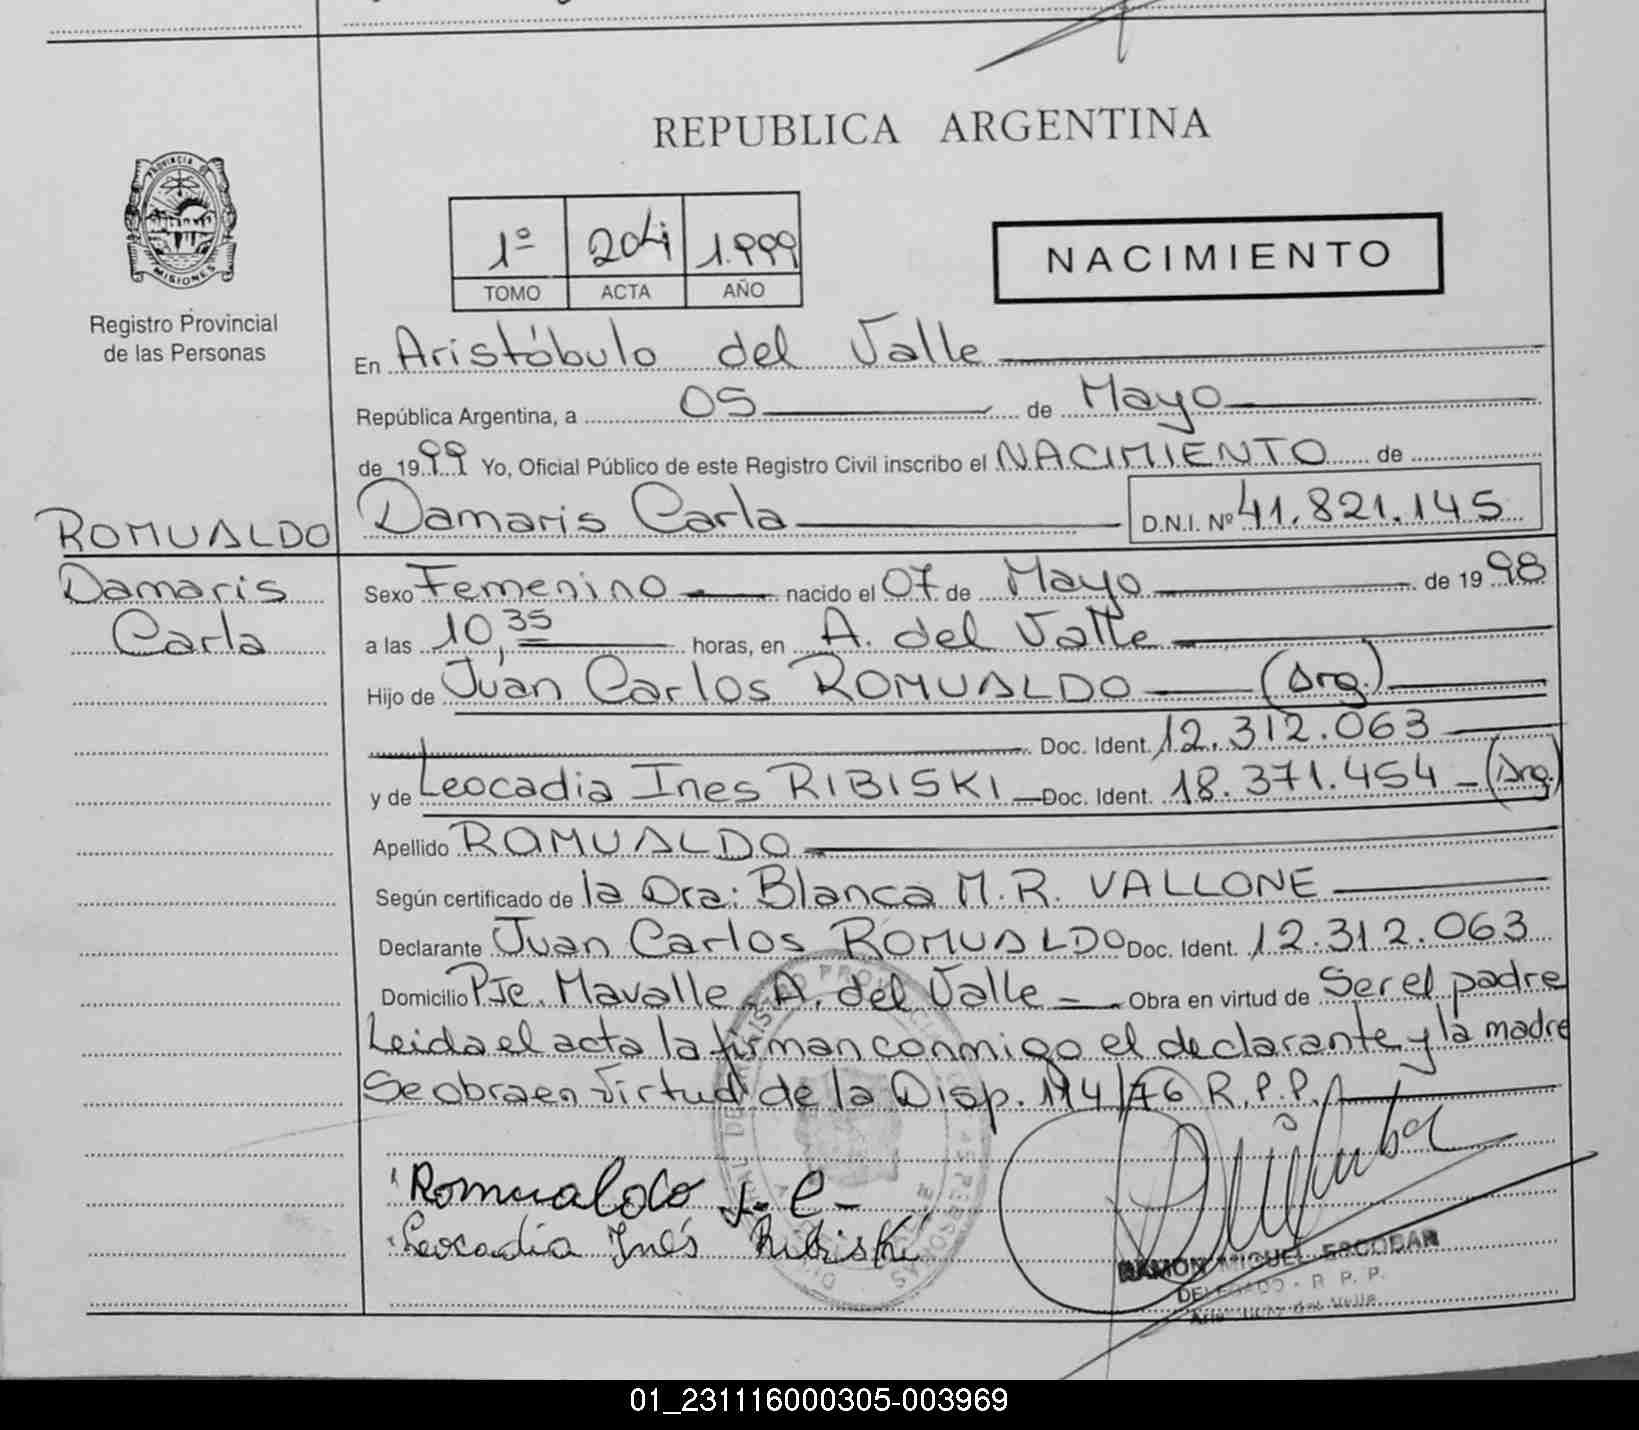 REPUBLICA ARGENTINA
PROVINCIA DE
MISIONES
Registro Provincial
de las Personas
1º 204 1.999
TOMO ACTA AÑO
NACIMIENTO
En Aristóbulo del Valle
República Argentina, a 05 de Mayo
de 1999 Yo, Oficial Público de este Registro Civil inscribo el NACIMIENTO de
ROMUALDO
Damaris
Carla
Damaris Carla D.N.I. Nº 41.821.145
Sexo Femenino nacido el 07 de Mayo de 1998
a las 10,35 horas, en A. del Valle
Hijo de Juan Carlos ROMUALDO (Arg.)
Doc. Ident. 12.312.063
y de Leocadia Ines RIBISKI Doc. Ident. 18.371.454 - (Arg.)
Apellido ROMUALDO
Según certificado de la Dra: Blanca M.R. VALLONE
Declarante Juan Carlos ROMUALDO Doc. Ident. 12.312.063
Domicilio Pje. Mavalle - A. del Valle Obra en virtud de Ser el padre
Leida el acta la firman conmigo el declarante y la madre
Se obra en virtud de la Disp. 114/76 R.P.P.
Romualdo J. C.
Leocadia Inés Ribiski
RAMON MIGUEL ESCOBAR
DELEGADO - R. P. P.
Aristóbulo del Valle
01_231116000305-003969